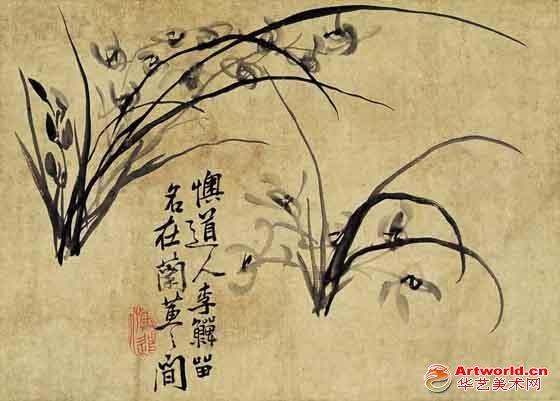 懊道人李鱓留
名在蘭蕙之間
Artworld.cn
华艺美术网